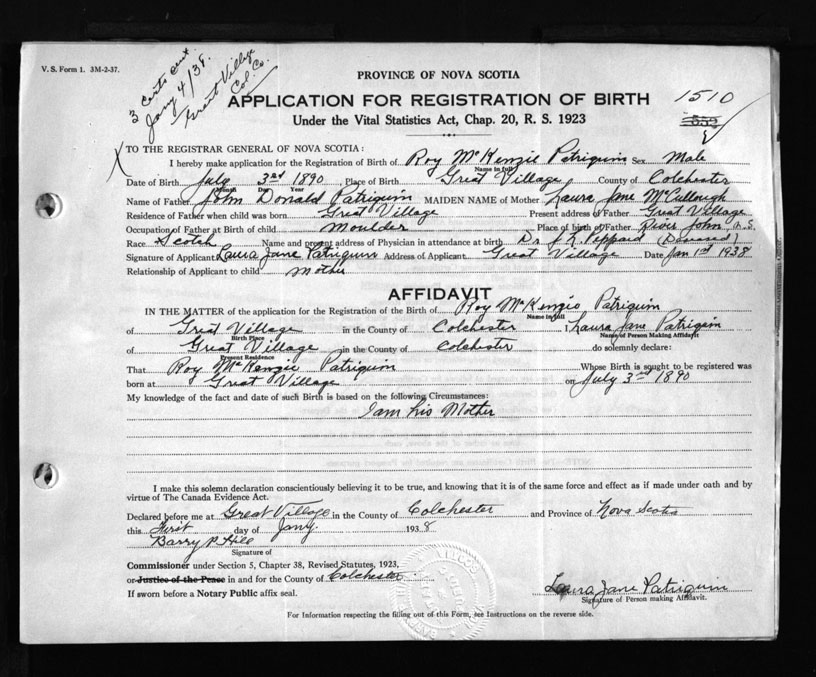 V. S. Form 1. 3M-2-37.
3 certs sent
Jany 4/38.
Great Village
Col. Co.
PROVINCE OF NOVA SCOTIA
APPLICATION FOR REGISTRATION OF BIRTH
1510
Under the Vital Statistics Act, Chap. 20, R. S. 1923
TO THE REGISTRAR GENERAL OF NOVA SCOTIA:
I hereby make application for the Registration of Birth of Roy McKenzie Patriquin Sex Male
Name in full
Date of Birth July 3rd 1890 Place of Birth Great Village County of Colchester
Month Day Year
Name of Father John Donald Patriquin MAIDEN NAME of Mother Laura Jane McCullough
Residence of Father when child was born Great Village Present address of Father Great Village
Occupation of Father at Birth of child Moulder Place of birth of Father River John N.S.
Race Scotch Name and present address of Physician in attendance at birth Dr Peppard (Deceased)
Signature of Applicant Laura Jane Patriquin Address of Applicant Great Village Date Jan 1st 1938
Relationship of Applicant to child Mother
AFFIDAVIT
IN THE MATTER of the application for the Registration of the Birth of Roy McKenzie Patriquin
Name in full
of Great Village in the County of Colchester I, Laura Jane Patriquin
Birth Place Name of Person Making Affidavit
of Great Village in the County of Colchester do solemnly declare:
Present Residence
That Roy McKenzie Patriquin Whose Birth is sought to be registered was
born at Great Village on July 3rd 1890
My knowledge of the fact and date of such Birth is based on the following Circumstances:
I am his Mother
I make this solemn declaration conscientiously believing it to be true, and knowing that it is of the same force and effect as if made under oath and by
virtue of The Canada Evidence Act.
Declared before me at Great Village in the County of Colchester and Province of Nova Scotia
this First day of Jany. 1938
Barry P Hill
Signature of
Commissioner under Section 5, Chapter 38, Revised Statutes, 1923,
or Justice of the Peace in and for the County of Colchester
If sworn before a Notary Public affix seal.
Laura Jane Patriquin
Signature of Person making Affidavit.
For Information respecting the filling out of this Form, see Instructions on the reverse side.